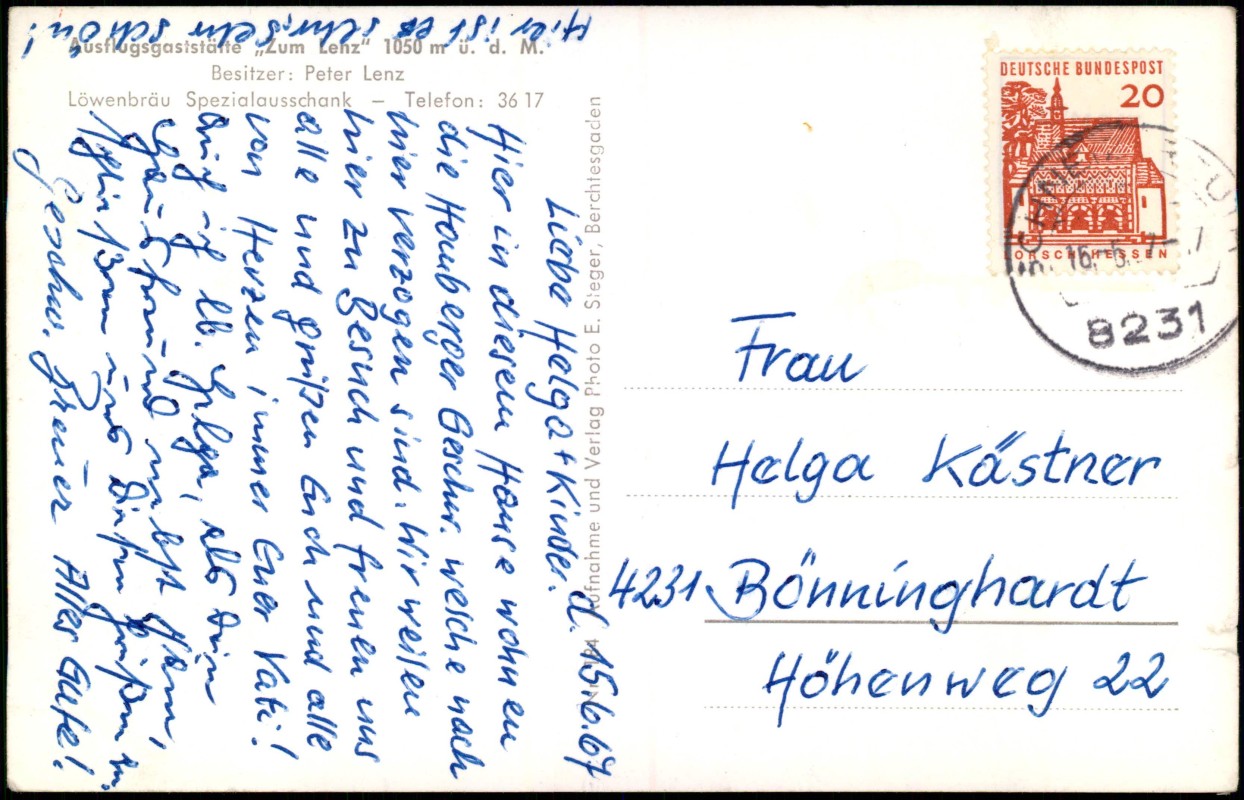 Hier ist es sehr, sehr schön!
Ausflugsgaststätte „Zum Lenz" 1050 m ü. d. M.
Besitzer: Peter Lenz
Löwenbräu Spezialausschank — Telefon: 36 17
d. 15.6.67
Liebe Helga + Kinder.
Hier in diesem Hause wohnen
die Hamberger Geschw. welche nach
hier verzogen sind. Wir weilen
hier zu Besuch und freuen uns
alle und grüßen Euch und alle
von Herzen immer Euer Vati!
Auch ich lb. Helga, als Dein
Hausfreund nebst
und grüßen
Geschw. Breuer Alles Gute!
Aufnahme und Verlag Photo E. Sieger, Berchtesgaden
DEUTSCHE BUNDESPOST
20
LORSCH/HESSEN
8231
Frau
Helga Kästner
4231 Bönninghardt
Höhenweg 22